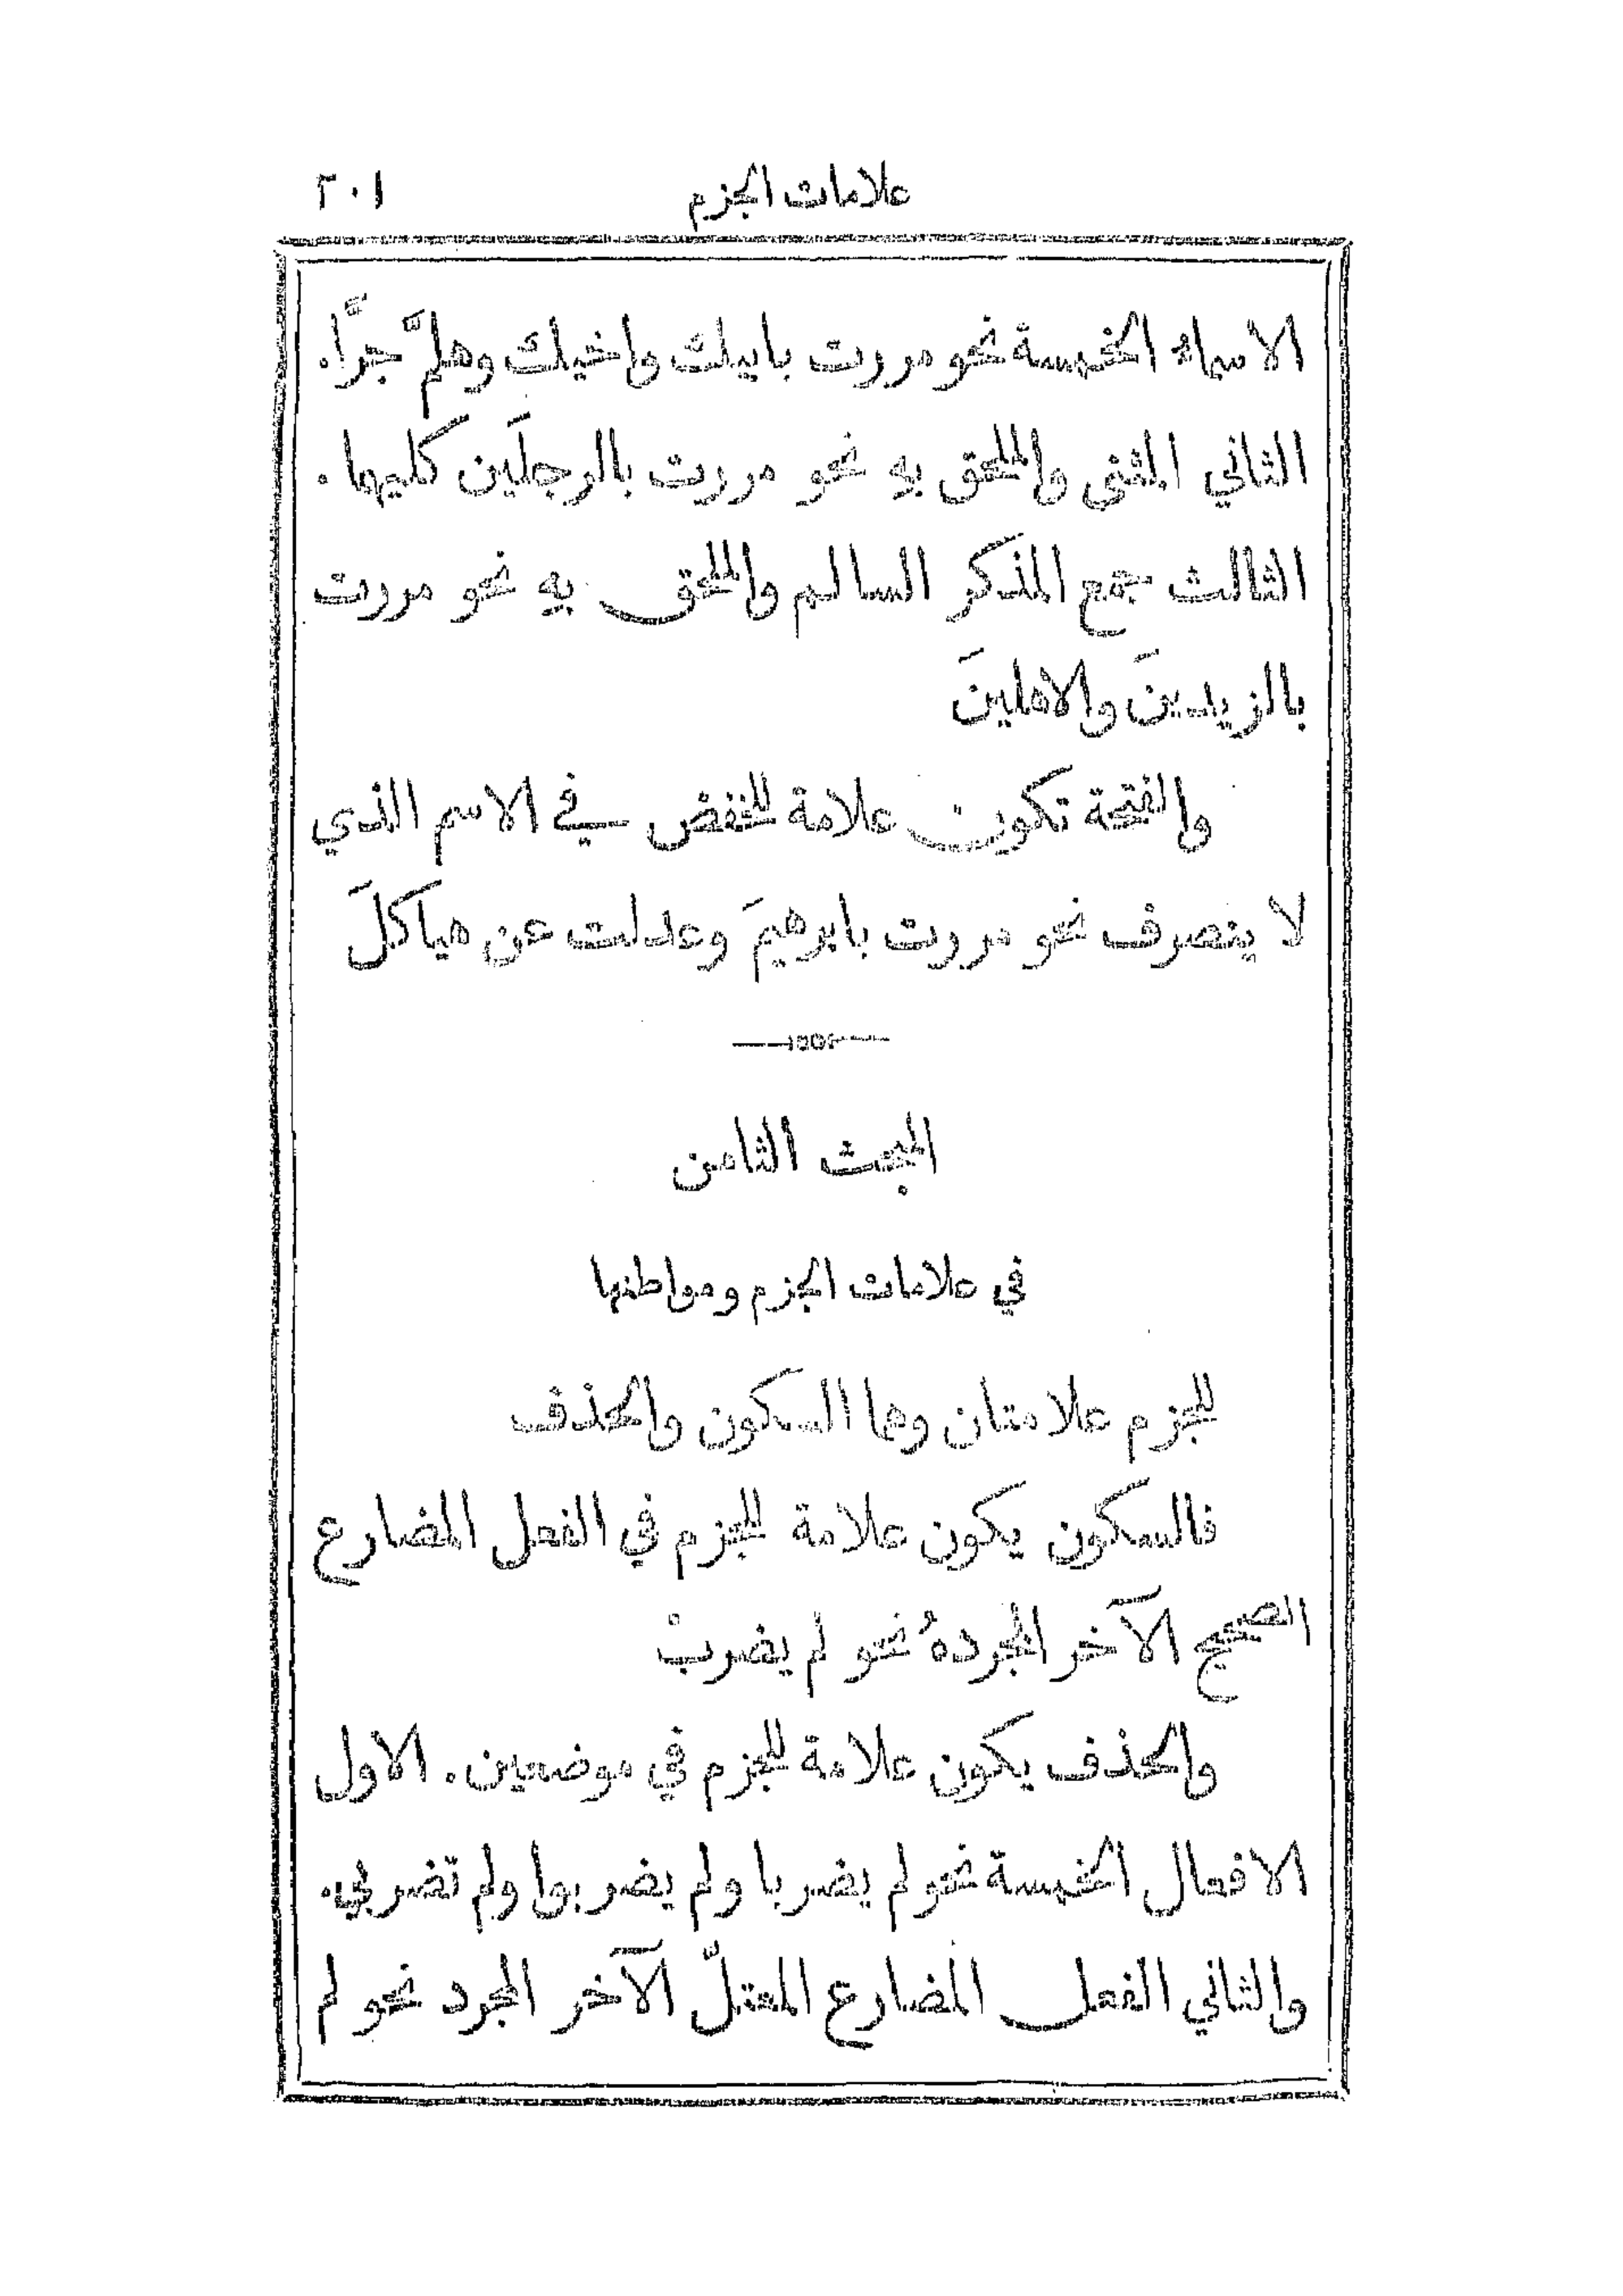 علامات الجزم ٢٠١
الاسماء الخمسة نحو مررت بابيك واخيك وهلمَّ جرًّا.
الثاني المثنى والملحق بهِ نحو مررت بالرجلَين كليهما.
الثالث جمع المذكر السالم والملحق بهِ نحو مررت
بالزيدينَ والاهلينَ
والفتحة تكون علامة للخفض في الاسم الذي
لا ينصرف نحو مررت بابرهيمَ وعدلت عن هياكلَ
المبحث الثامن
في علامات الجزم ومواطنها
للجزم علامتان وهما السكون والحذف
فالسكون يكون علامة للجزم في الفعل المضارع
الصحيح الآخر المجردهُ نحو لم يضربْ
والحذف يكون علامة للجزم في موضعين. الاول
الافعال الخمسة نحو لم يضربا ولم يضربوا ولم تضربي.
والثاني الفعل المضارع المعتلّ الآخر المجرد نحو لم